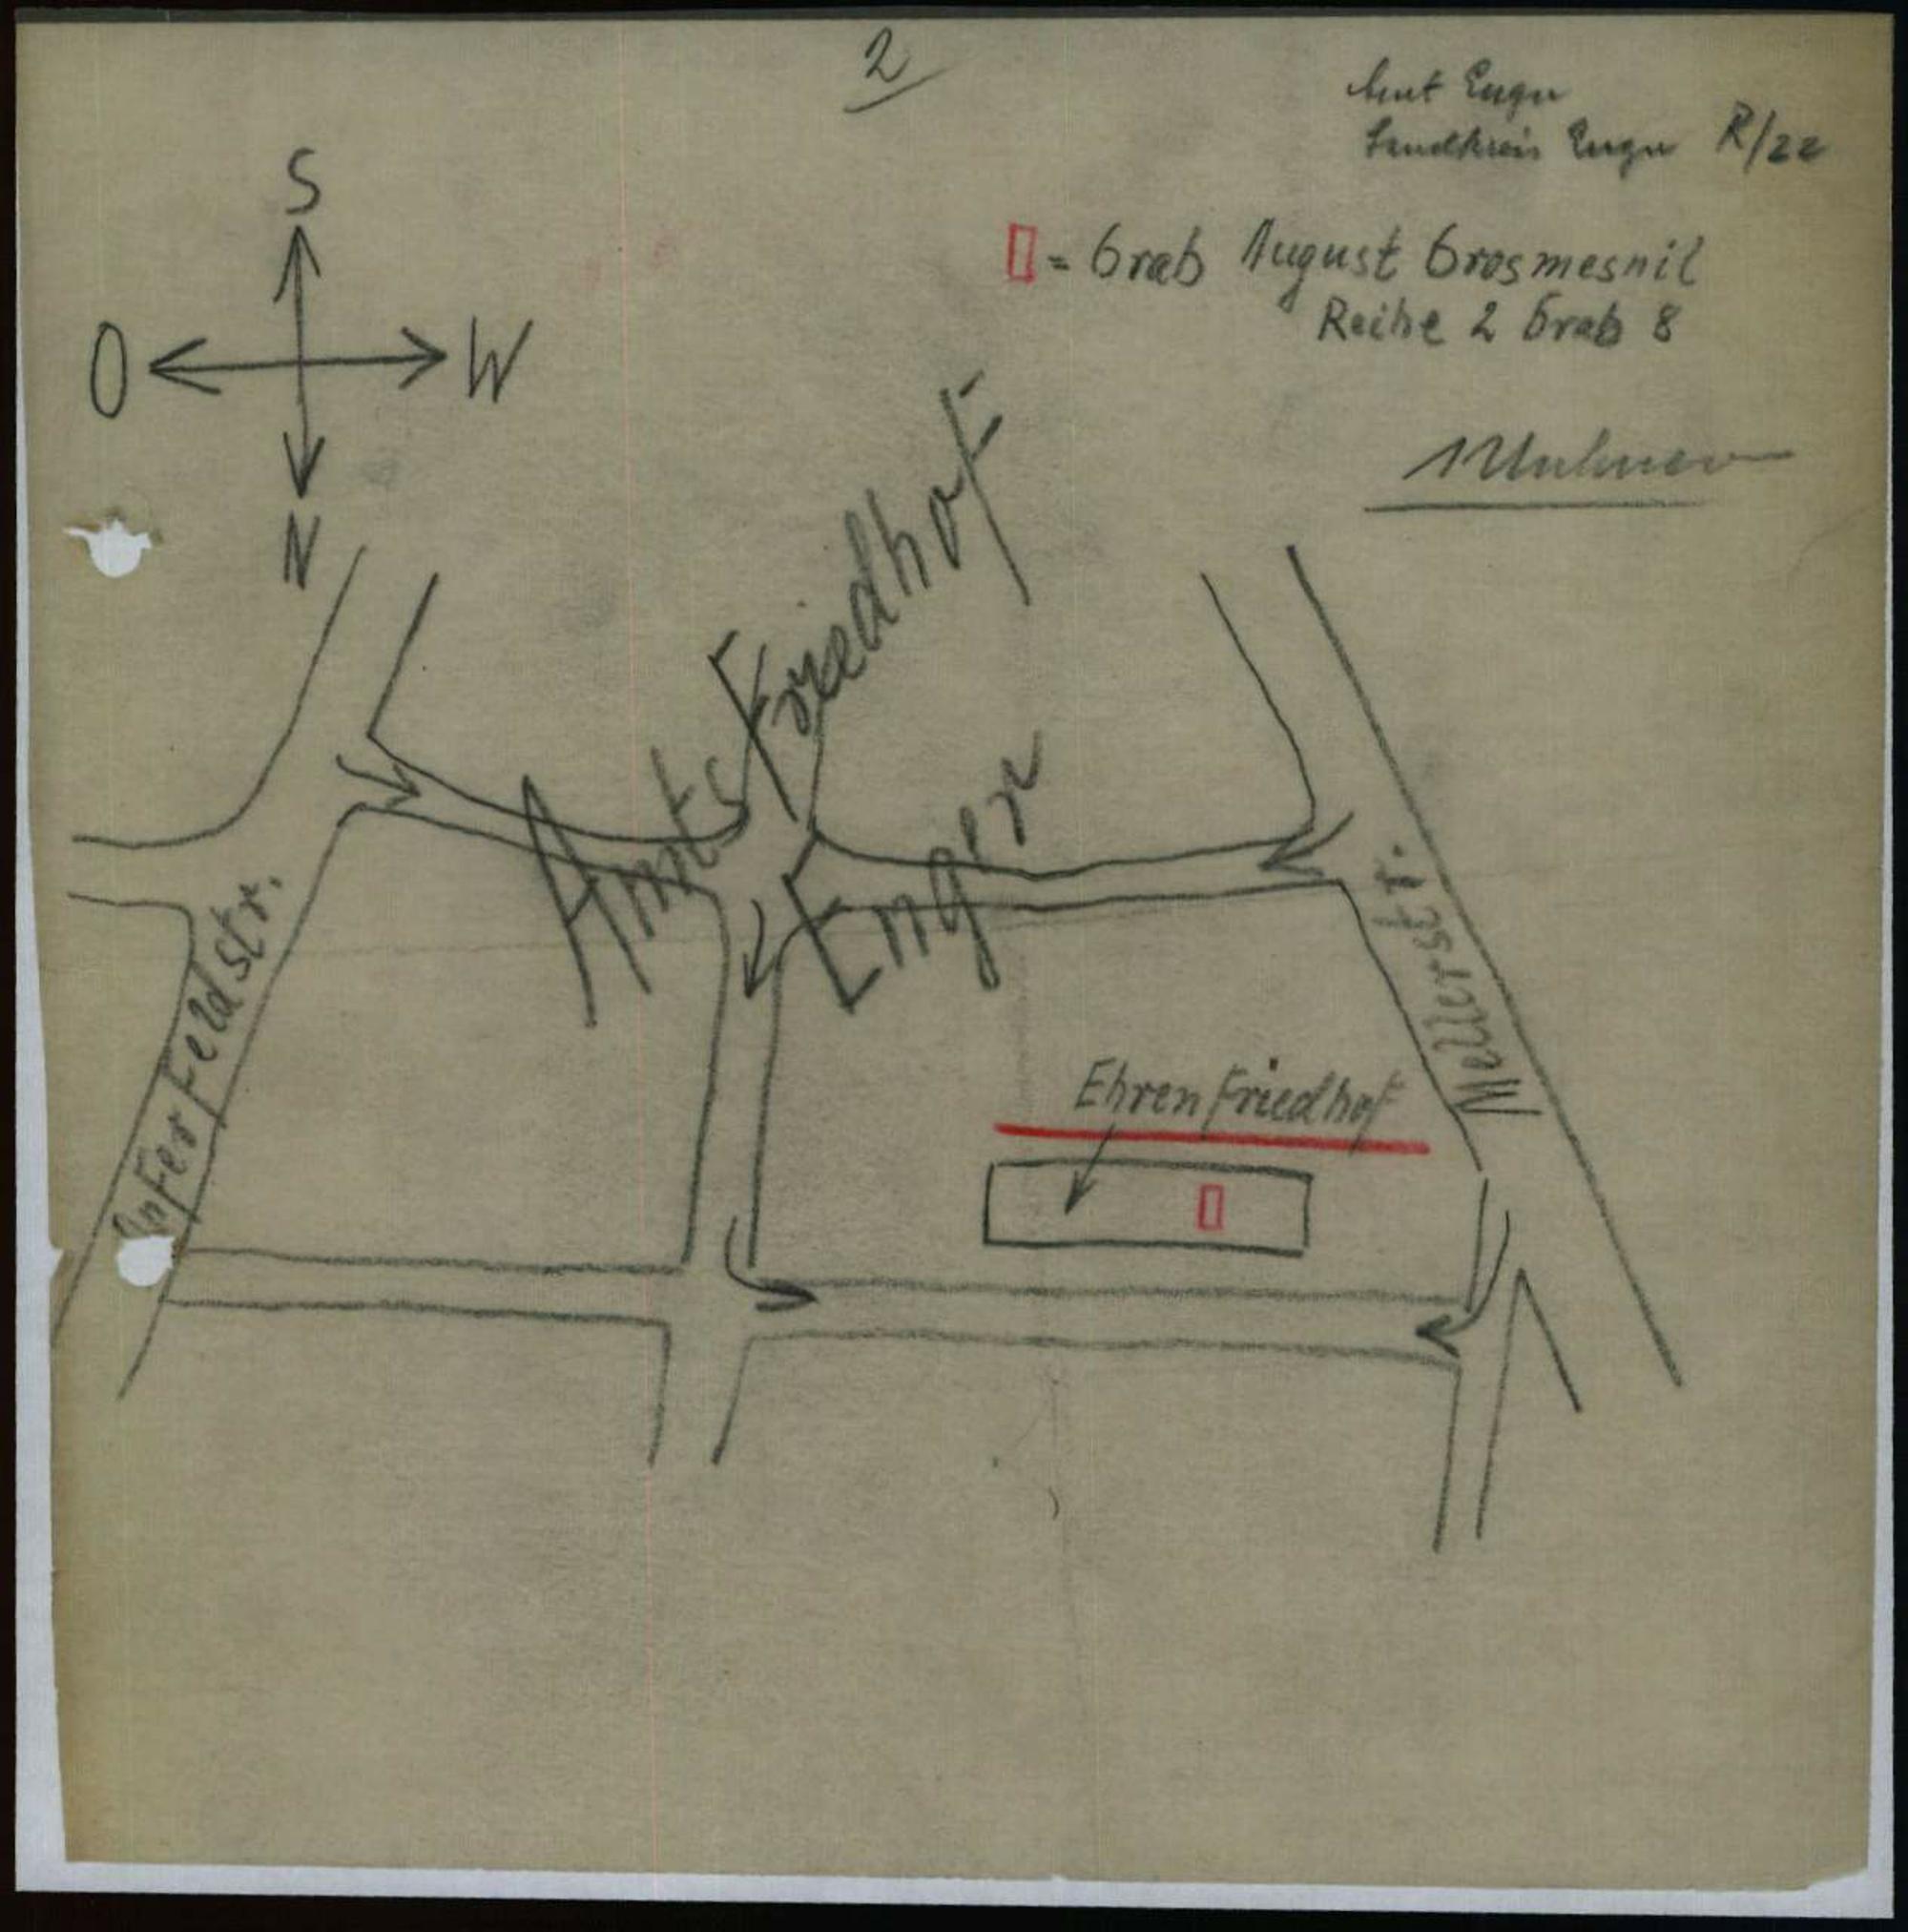 2
Amt Enger
Landkreis Enger R/22
S
O W
N
= Grab August Grosmesnil
Reihe 2 Grab 8
Amts Friedhof
Enger
Feldstr.
Mellerstr.
Ehren Friedhof